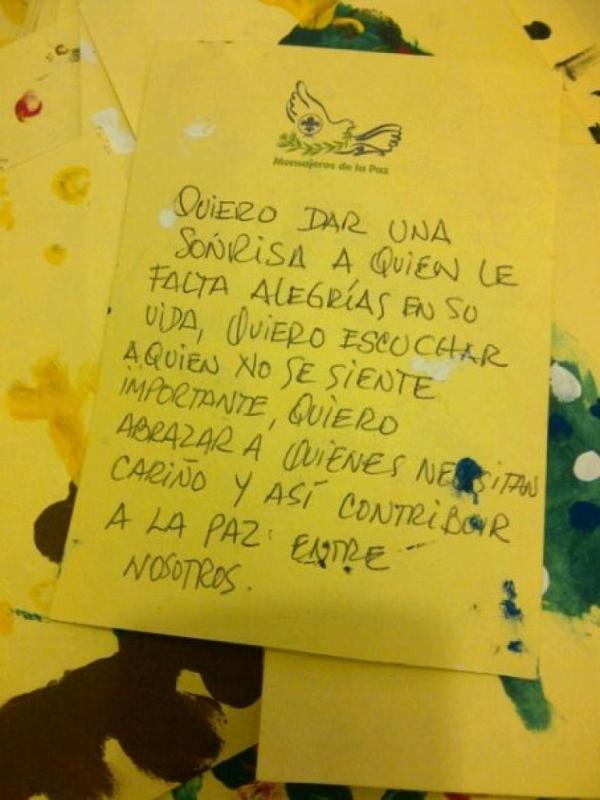 Mensajeros de la Paz
QUIERO DAR UNA
SONRISA A QUIEN LE
FALTA ALEGRÍAS EN SU
VIDA, QUIERO ESCUCHAR
A QUIEN NO SE SIENTE
IMPORTANTE, QUIERO
ABRAZAR A QUIENES NECESITAN
CARIÑO Y ASÍ CONTRIBUIR
A LA PAZ ENTRE
NOSOTROS.